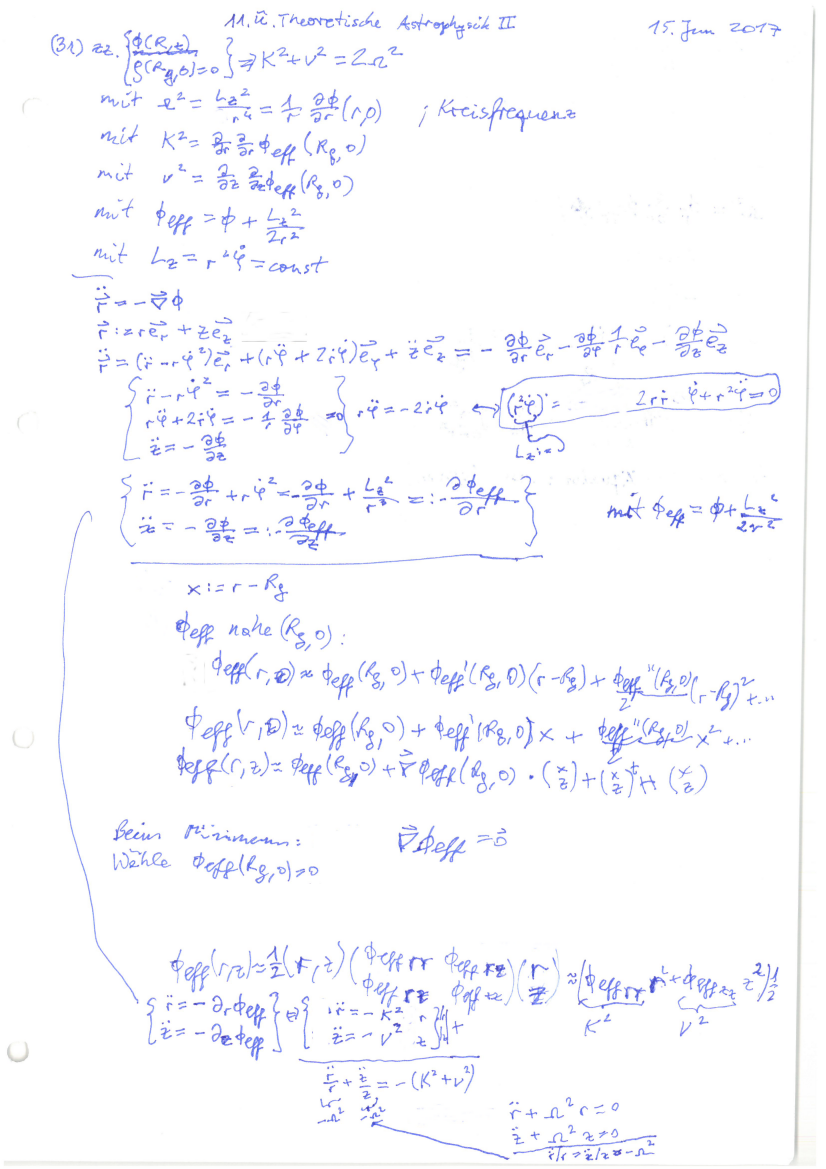 11. Ü. Theoretische Astrophysik II 15. Jun 2017
(31) zz. { ϕ(R,z) ρ(R_g,0)=0 } ⇒ K²+ν² = 2Ω²
mit Ω² = L_z²/r⁴ = 1/r ∂ϕ/∂r (r,0) ; Kreisfrequenz
mit K² = ∂/∂r ∂/∂r ϕ_eff (R_g,0)
mit ν² = ∂/∂z ∂/∂z ϕ_eff (R_g,0)
mit ϕ_eff = ϕ + L_z²/2r²
mit L_z = r²φ̇ = const
r⃗̈ = -∇⃗ϕ
r⃗ := r e⃗_r + z e⃗_z
r⃗̈ = (r̈ - rφ̇²) e⃗_r + (rφ̈ + 2ṙφ̇) e⃗_φ + z̈ e⃗_z = - ∂ϕ/∂r e⃗_r - ∂ϕ/∂φ 1/r e⃗_φ - ∂ϕ/∂z e⃗_z
{ r̈ - rφ̇² = - ∂ϕ/∂r
rφ̈ + 2ṙφ̇ = - 1/r ∂ϕ/∂φ = 0 } rφ̈ = -2ṙφ̇ ↔ (r²φ̇)˙ = 2rṙ φ̇ + r²φ̈ = 0
z̈ = - ∂ϕ/∂z L_z :=
{ r̈ = - ∂ϕ/∂r + rφ̇² = - ∂ϕ/∂r + L_z²/r³ =: - ∂ϕ_eff/∂r } mit ϕ_eff = ϕ + L_z²/2r²
z̈ = - ∂ϕ/∂z =: - ∂ϕ_eff/∂z
x := r - R_g
ϕ_eff nahe (R_g,0) :
ϕ_eff(r,0) ≈ ϕ_eff(R_g,0) + ϕ_eff'(R_g,0)(r-R_g) + ϕ_eff''(R_g,0)/2 (r-R_g)² + ...
ϕ_eff(r,0) ≈ ϕ_eff(R_g,0) + ϕ_eff'(R_g,0) x + ϕ_eff''(R_g,0)/2 x² + ...
ϕ_eff(r,z) ≈ ϕ_eff(R_g,0) + ∇⃗ ϕ_eff(R_g,0) · (x z) + (x z)ᵗ H (x z)
Beim Minimum: ∇⃗ϕ_eff = 0⃗
Wähle ϕ_eff(R_g,0)=0
ϕ_eff(r,z) ≈ 1/2 (r,z) (ϕ_eff rr ϕ_eff rz ϕ_eff rz ϕ_eff zz) (r z) ≈ (ϕ_eff rr r² + ϕ_eff zz z²) 1/2
K² ν²
{ r̈ = -∂_r ϕ_eff } ⇔ { r̈ = -K² r | 1/r
z̈ = -∂_z ϕ_eff z̈ = -ν² z } | 1/z +
r̈/r + z̈/z = -(K²+ν²)
-Ω² -Ω²
r̈ + Ω² r = 0
z̈ + Ω² z = 0
r̈/r = z̈/z = -Ω²